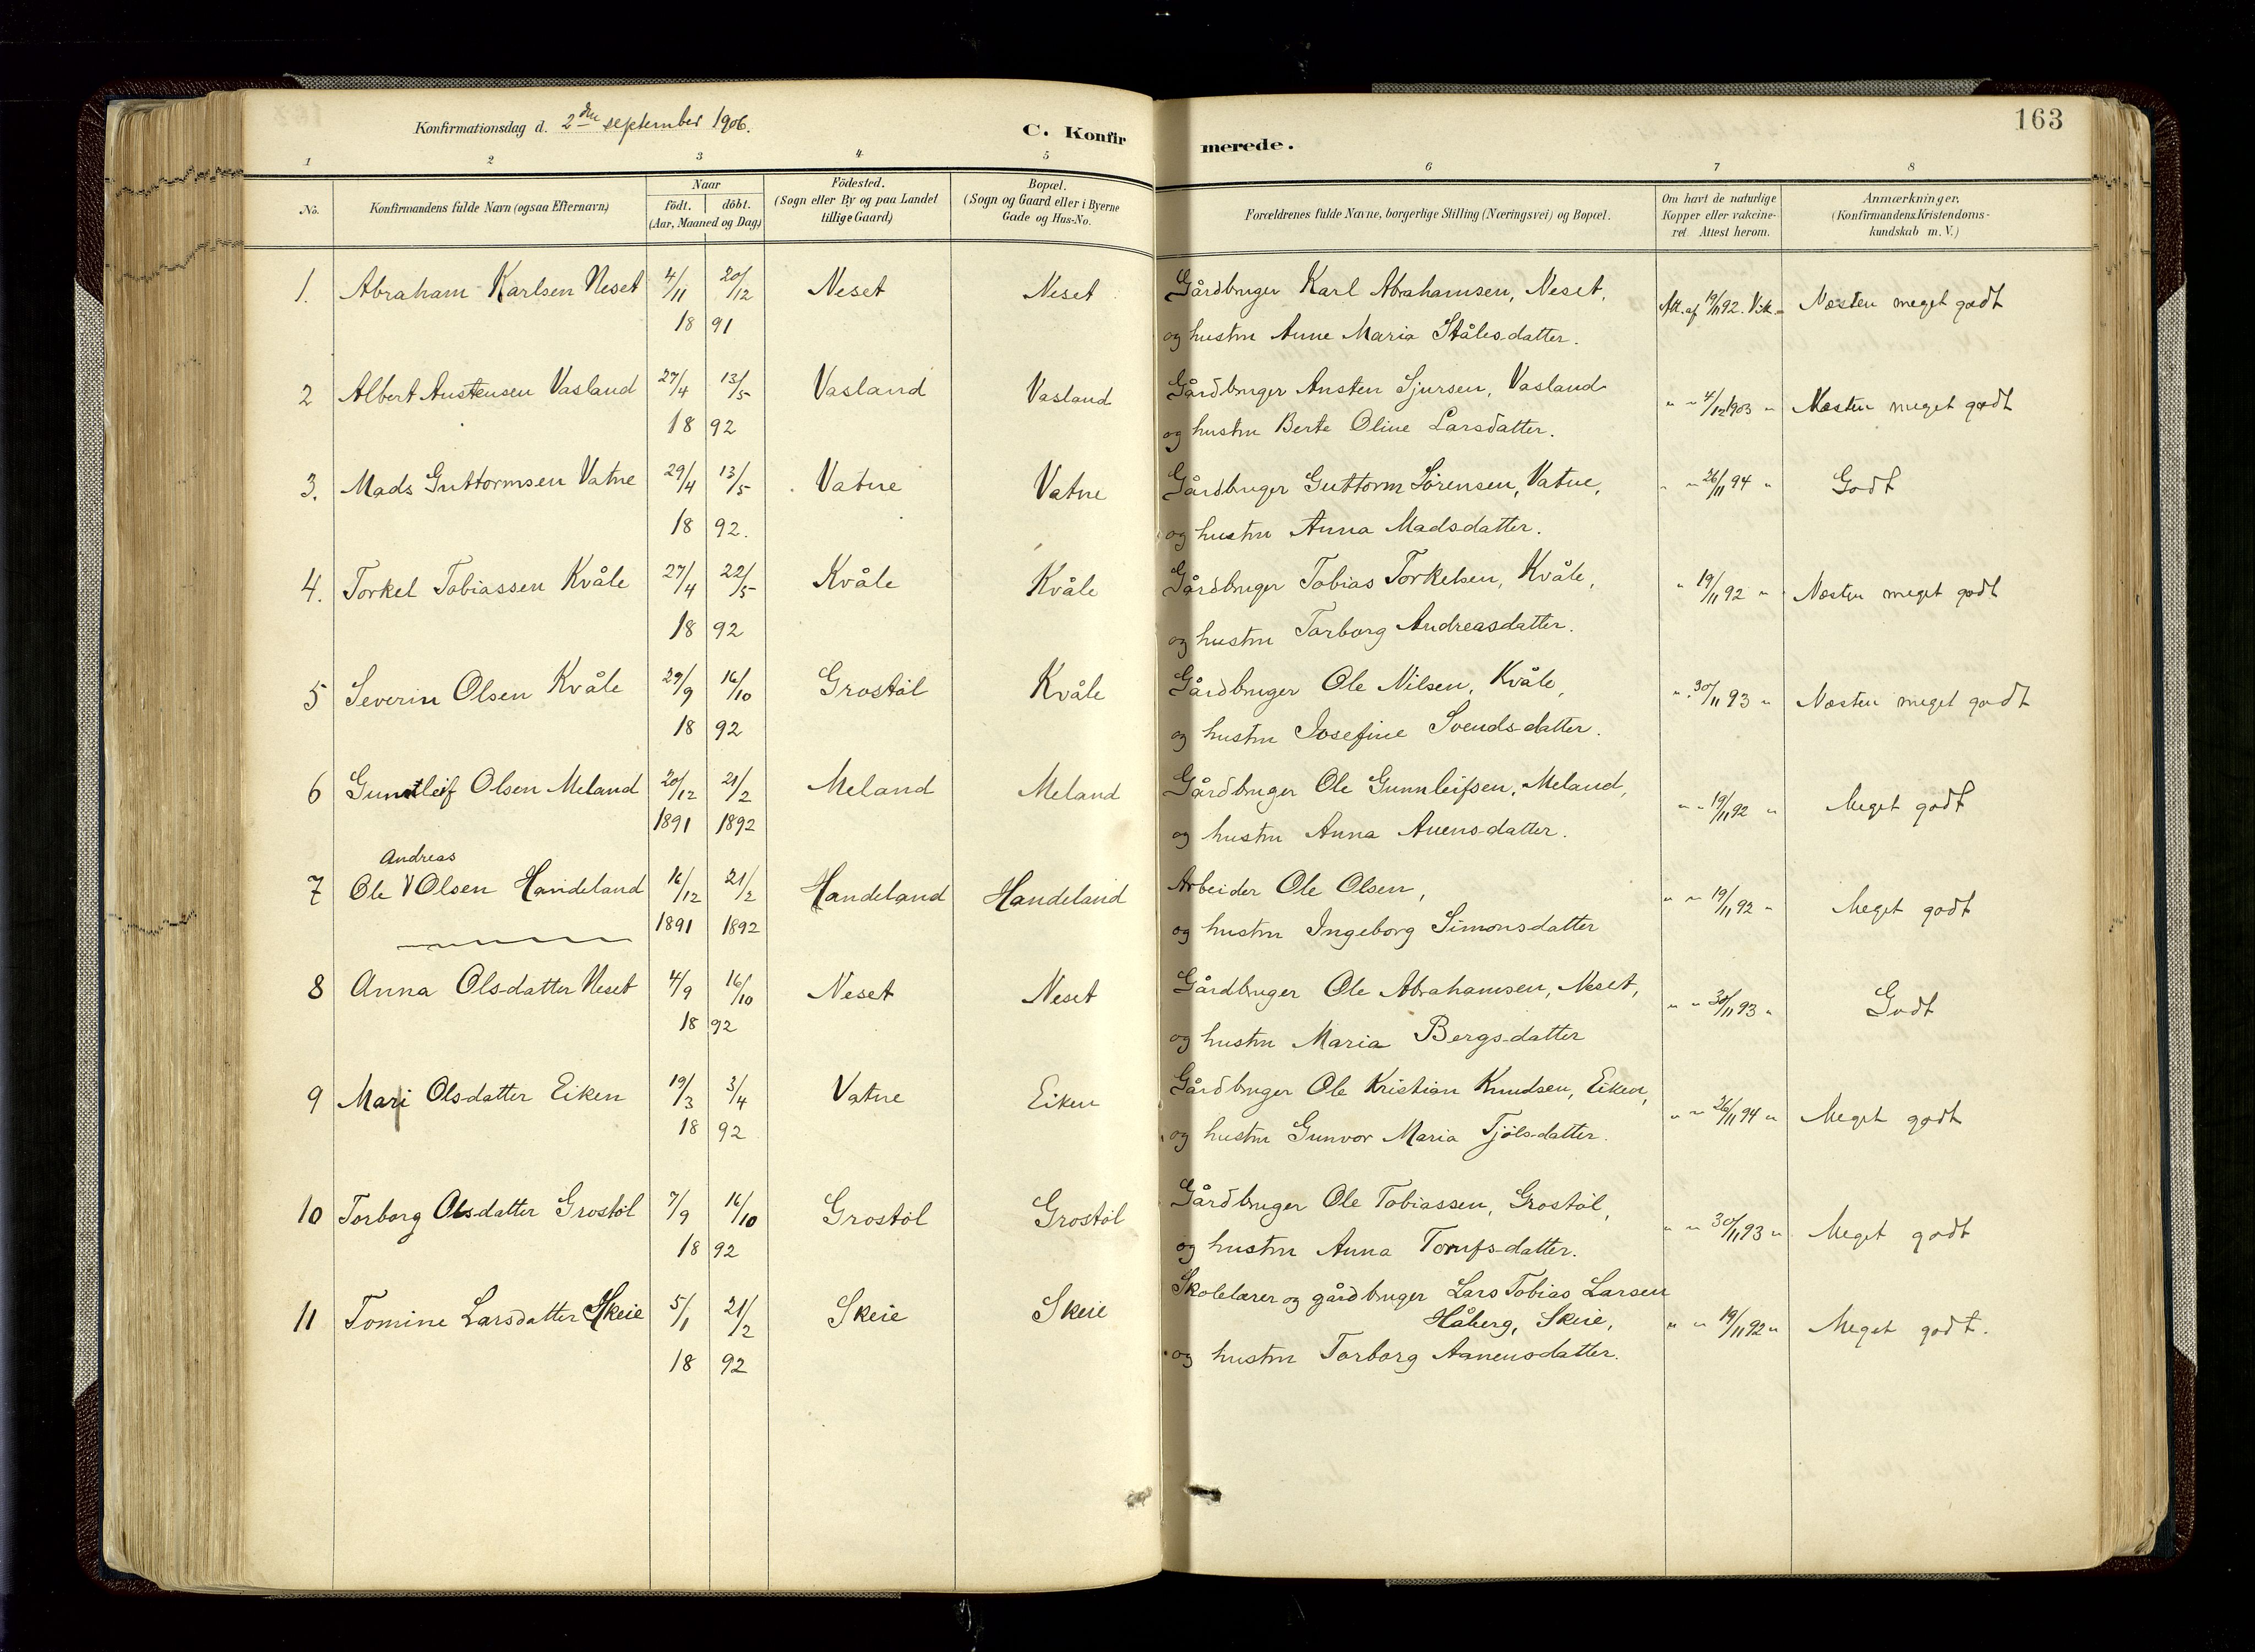 163
Konfirmationsdag d. 2den september 1906.
C. Konfirmerede.
1 2 3 4 5 6 7 8
No. Konfirmandens fulde Navn (ogsaa Efternavn) Naar födt. döbt. (Aar, Maaned og Dag) Födested. (Sogn eller By og paa Landet tillige Gaard) Bopæl. (Sogn og Gaard eller i Byerne Gade og Hus-No. Forældrenes fulde Navne, borgerlige Stilling (Næringsvei) og Bopæl. Om havt de naturlige Kopper eller vakcineret. Attest herom. Anmærkninger. (Konfirmandens Kristendomskundskab m. V.)
1. Abraham Karlsen Neset 4/11 20/12 Neset Neset Gårdbruger Karl Abrahamsen, Neset, Att. af 19/11 92. Vik. Næsten meget godt
18 91 og hustru Anne Maria Ståles-datter.
2 Albert Austensen Vasland 27/4 13/5 Vasland Vasland Gårdbruger Austen Sjursen, Vasland " " 4/12 1903 " Næsten meget godt
18 92 og hustru Berte Oline Larsdatter.
3. Mads Guttormsen Vatne 29/4 13/5 Vatne Vatne Gårdbruger Guttorm Sörensen, Vatne, " " 26/11 94 " Godt
18 92. og hustru Anna Madsdatter.
4. Torkel Tobiassen Kvåle 27/4 22/5 Kvåle Kvåle Gårdbruger Tobias Torkelsen, Kvåle, " 19/11 92 " Næsten meget godt
18 92 og hustru Torborg Andreasdatter.
5 Severin Olsen Kvåle 29/9 16/10 Grostöl Kvåle Gårdbruger Ole Nilsen, Kvåle, " 30/11 93 " Næsten meget godt
18 92 og hustru Josefine Svends-datter.
6 Gunnleif Olsen Meland 20/12 21/2 Meland Meland Gårdbruger Ole Gunnleifsen, Meland, " " 19/11 92 " Meget godt
1891 1892 og hustru Anna Auens-datter.
Andreas
7 Ole V Olsen Handeland 16/12 21/2 Handeland Handeland Arbeider Ole Olsen, " " 19/11 92 " Meget godt
1891 1892 og hustru Ingeborg Simonsdatter
8 Anna Ols-datter Neset 4/9 16/10 Neset Neset Gårdbruger Ole Abrahamsen, Neset, " " 30/11 93 " Godt
18 92 og hustru Maria Bergs-datter
9 Mari Olsdatter Eiken 19/3 3/4 Vatne Eiken Gårdbruger Ole Kristian Knudsen, Eiken, " " 26/11 94 " Meget godt
18 92 og hustru Gunvor Maria Tjöls-datter.
10 Torborg Olsdatter Grostöl 7/9 16/10 Grostöl Grostöl Gårdbruger Ole Tobiassen, Grostöl, " " 30/11 93 " Meget godt
18 92 og hustru Anna datter.
11 Tomine Larsdatter Skeie 5/1 21/2 Skeie Skeie Skolelærer og gårdbruger Lars Tobias Larsen
Håberg, Skeie, " " 19/11 92 " Meget godt.
18 92 og hustru Torborg Aanensdatter.